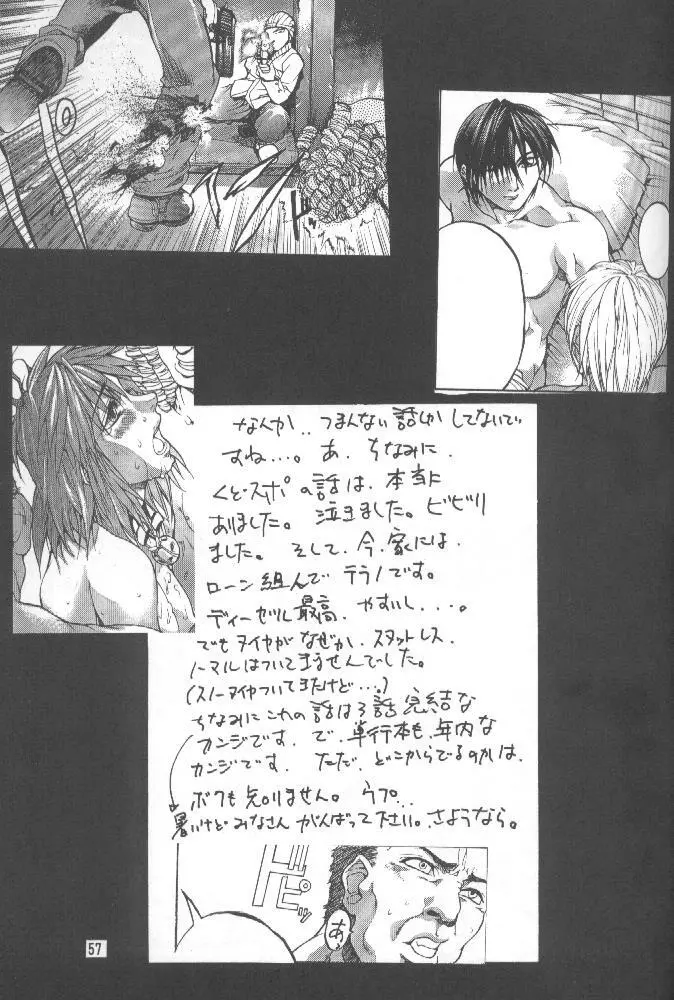 なんか‥つまんない話しか してないで
すね…。あ、ちなみに、
くどースポの話は、本当に
ありました。泣きました。ビビリ
ました。そして、今、家には、
ローン組んで テラノです。
ディーゼル最高、やすいし、、、。
でもタイヤがなぜか、スタットレス、
ノーマルはついてませんでした。
(スノータイヤついてきたけど…。)
ちなみにこれの話は3話完結な
カンジです、で、単行本も、年内な
カンジです、ただ、どこからでるのかは、
ボクも知りません。ウプ…
暑いけど みなさん がんばって下さい。さようなら。
ピッ
あ、
57